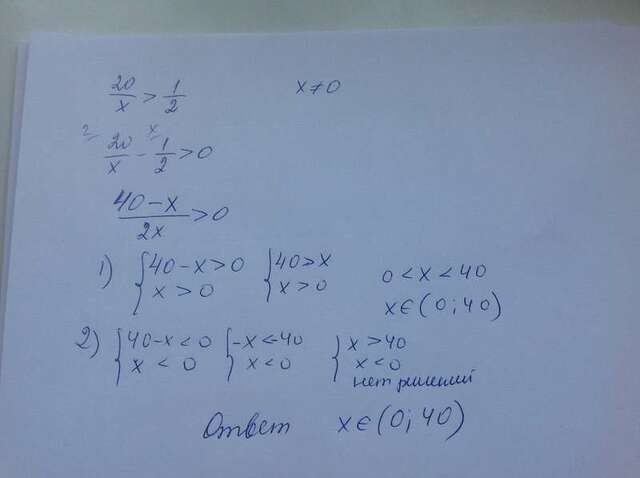 20/x > 1/2 x ≠ 0
2 20/x - x 1/2 > 0
40-x/2x > 0
1) { 40-x>0 { 40>x 0<x<40
x>0 x>0 x∈(0;40)
2) { 40-x<0 { -x<-40 { x>40
x<0 x<0 x<0
нет решений
Ответ x∈(0;40)